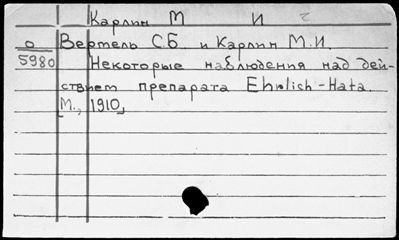 Карлин М И
О Вертель С.Б и Карлин М.И.
5980 Некоторые наблюдения над дей-
ствием препарата Ehrlich-Hata.
[М., 1910]